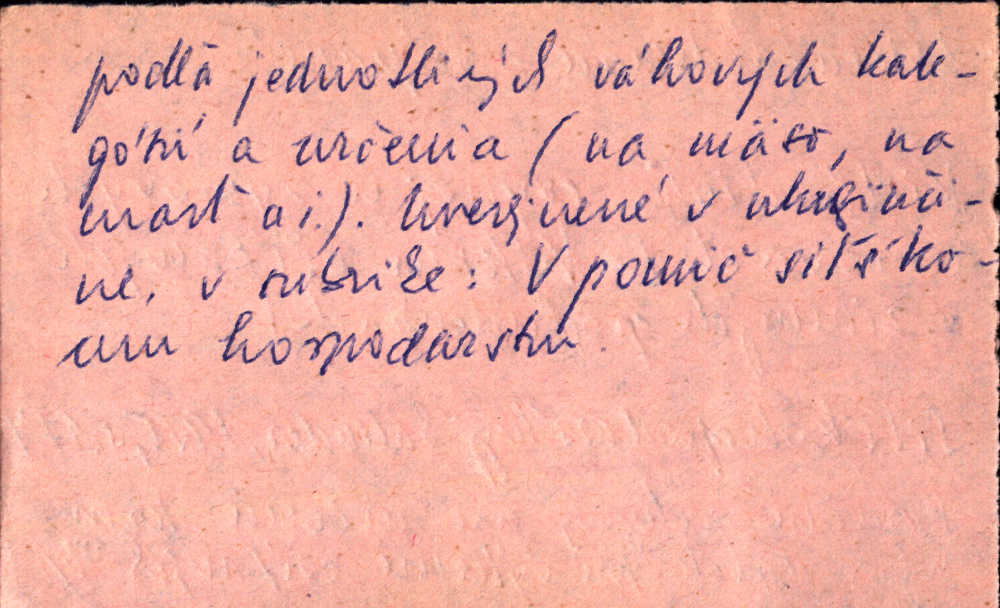 podľa jednotlivých váhových kate-
górií a určenia (na mäso, na
masť a i.). Uverejnené v ukrajinči-
ne, v rubrike: V pomoc siľsko-
mu hospodarstvu.